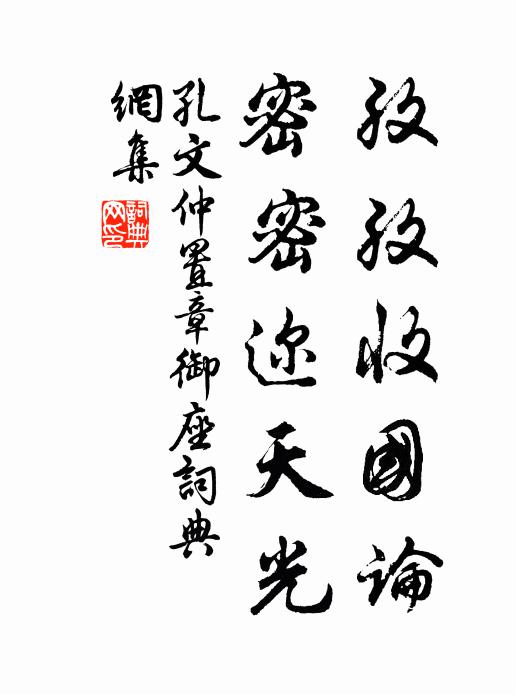 孜孜收國論
密密迩天光
孔文仲置章御座詞典
網集
詞典
网印